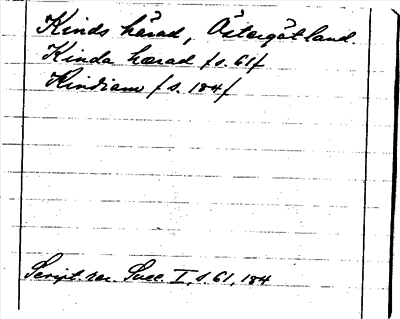 Kinds härad, Östergötland.
Kinda hærad / s. 61/
Kindiam / s. 184/
Script. rer. Suec. I, s. 61, 184